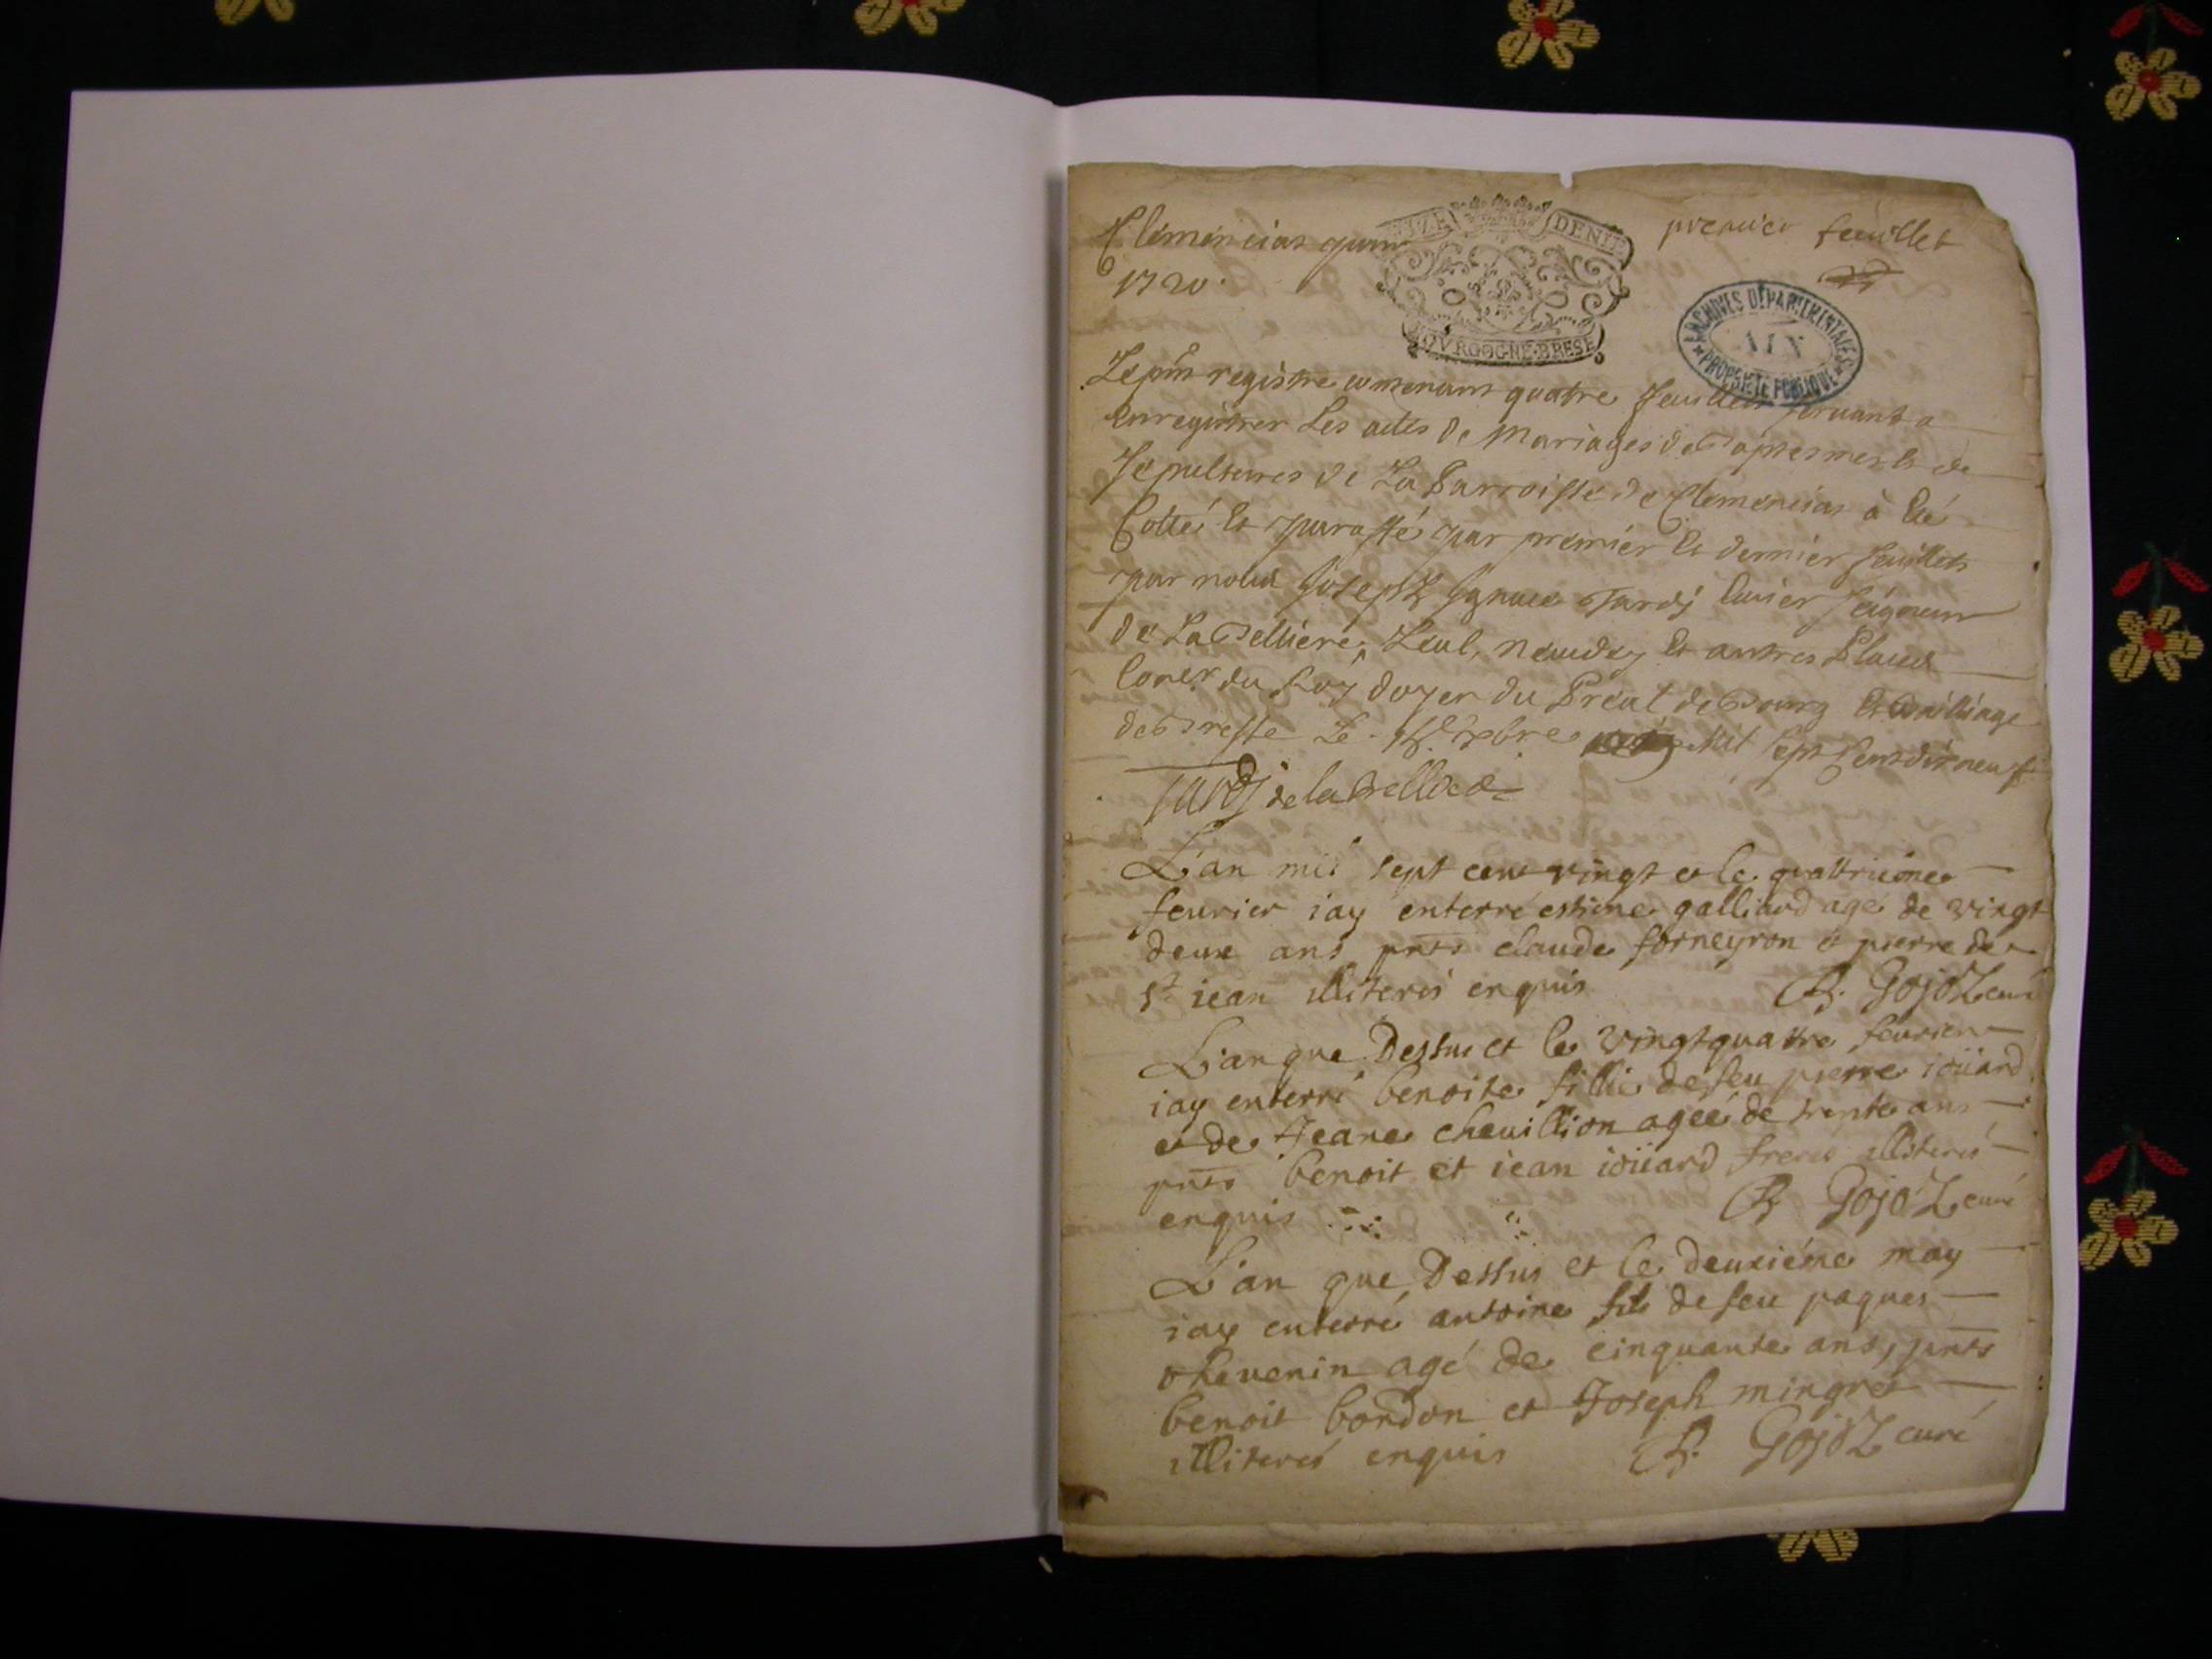 Clemencias pour
1720.
premier feuillet
SIZE DENIE
BOVRGOGNE·BRESE
ARCHIVES DÉPARTEMENTALES
AIN
PROPRIÉTÉ PUBLIQUE
Le pnt registre contenant quatre feuillets servant a
Enregistrer Les actes de Mariages de Baptesmes & de
Sepultures de La Parroisse de Clemencias à Eté
Cotté Et paraffé par premier Et dernier feuillets
par nous Joseph Ignace Tardy Ecuier Seigneur
de La Belliere, Et autres Places
Coner du Roy doyen du Preal de Bourg Et Bailliage
de Bresse Le xbre Mil Sept Cent dix neuf
Tardy de la
L'an mil sept cent vingt et le quattrieme
feurier iay enterré estiene galliard agé de vingt
deux ans pnts claude forneyron et pierre de
st jean illiterés enquis B. Gojoz curé
L'an que Dessus et le vingtquatre feurier
iay enterré benoite fillie de feu pierre ioüard
et de Jeane cheuillion agée de trente ans
pnts benoit et iean ioüard freres illiterés
enquis B. Gojoz curé
L'an que Dessus et le deuxiéme may
iay enterré antoine fils de feu paques
theuenin agé de cinquante ans, pnts
benoit bondon et Joseph mingret
illiterés enquis B. Gojoz curé